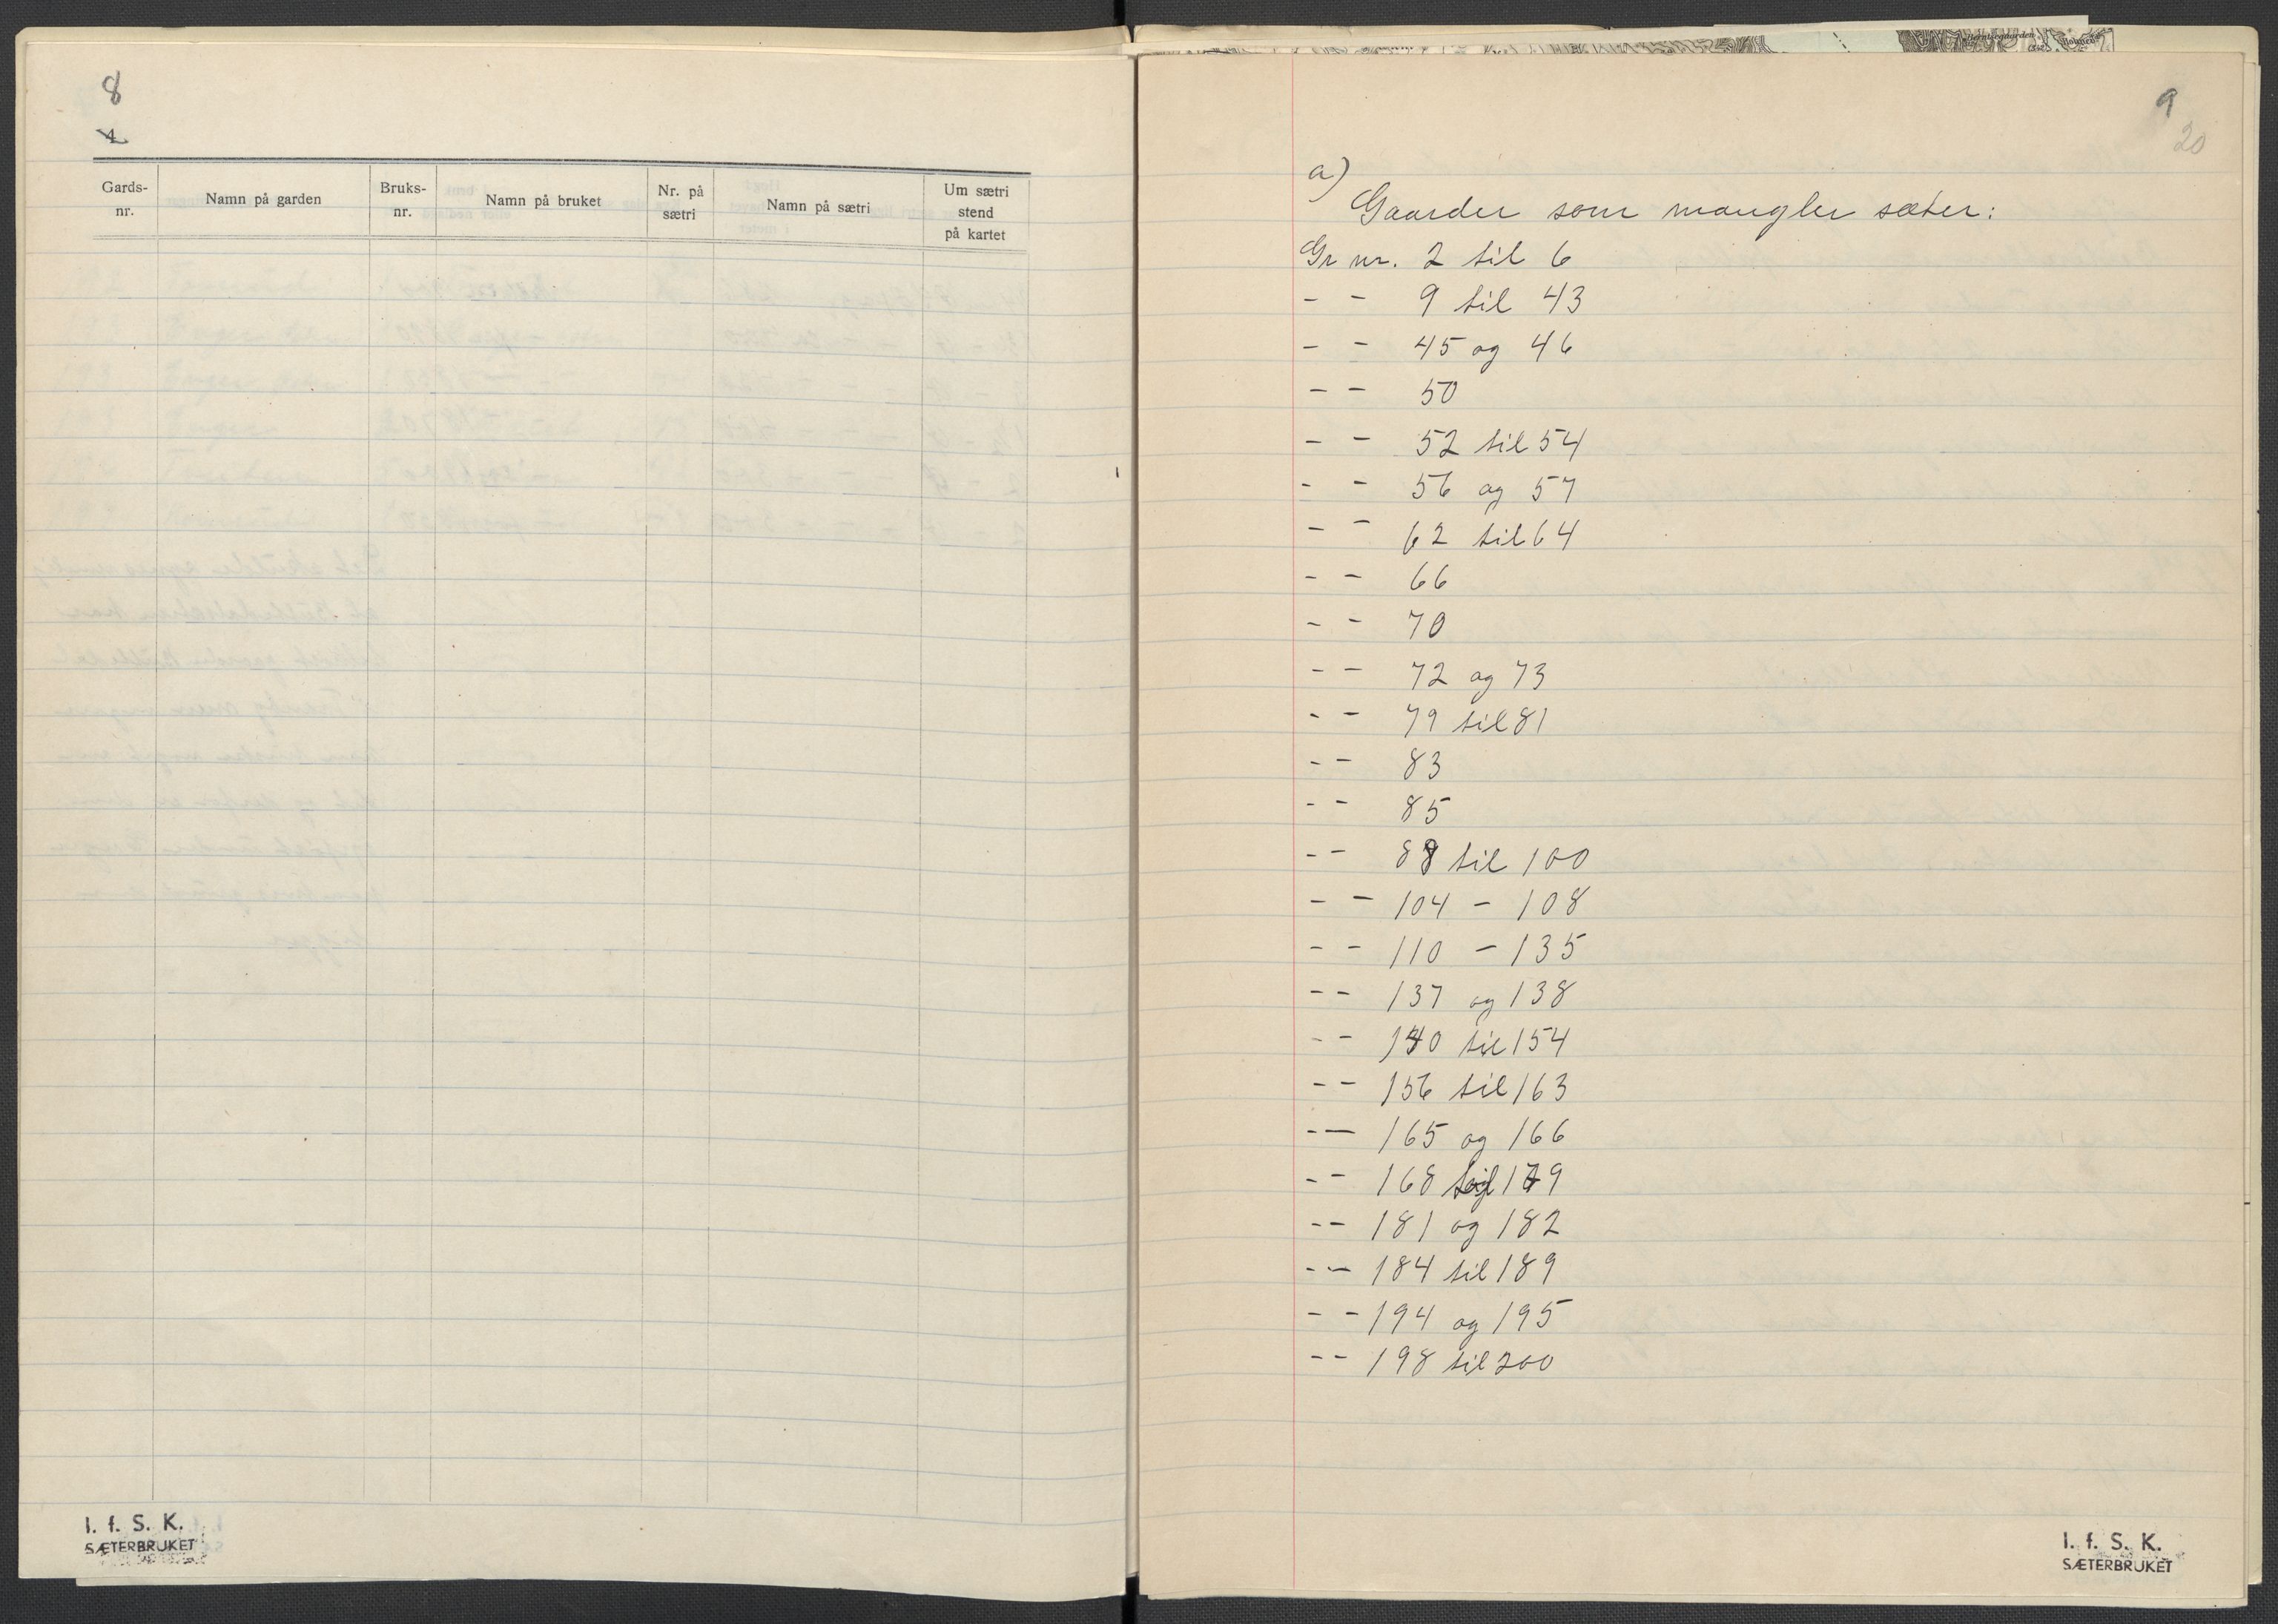 8
4
Gards-nr.
Namn på garden
Bruks-nr.
Namn på bruket
Nr. på sætri
Namn på sætri
Um sætri stend på kartet
I. f. S. K.
SÆTERBRUKET
9
20
a)
Gaarder som mangler sæter:
Gr nr. 2 til 6
- - 9 til 43
- - 45 og 46
- - 50
- - 52 til 54
- - 56 og 57
- - 62 til 64
- - 66
- - 70
- - 72 og 73
- - 79 til 81
- - 83
- - 85
- - 88 til 100
- - 104 - 108
- - 110 - 135
- - 137 og 138
- - 140 til 154
- - 156 til 163
- - 165 og 166
- - 168 til 179
- - 181 og 182
- - 184 til 189
- - 194 og 195
- - 198 til 200
I. f. S. K.
SÆTERBRUKET